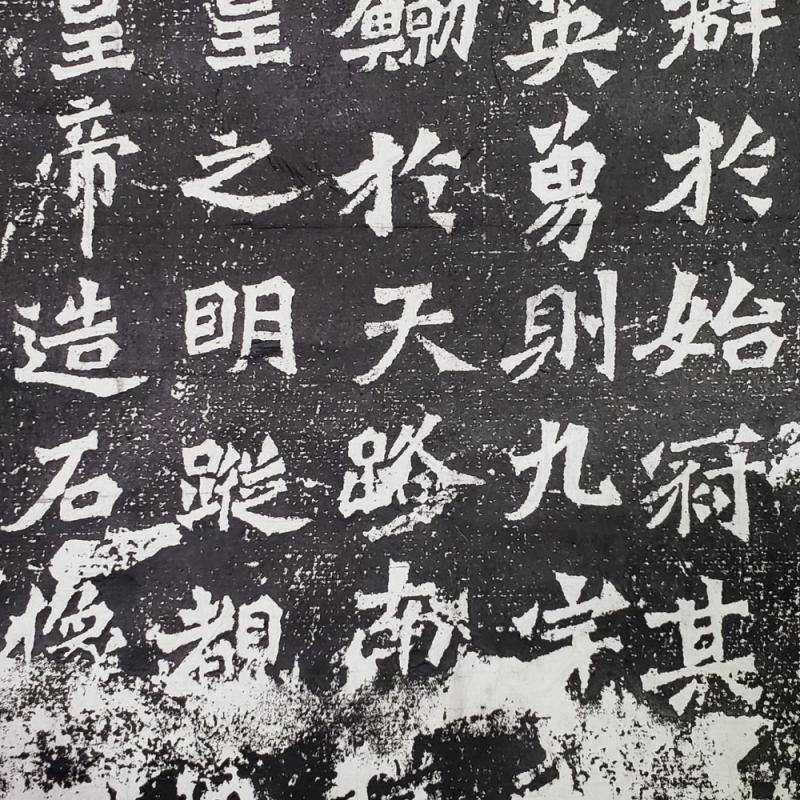 群於始冠其
英勇則九宇
鯨於天路南
皇之明蹤覩
皇帝造石像